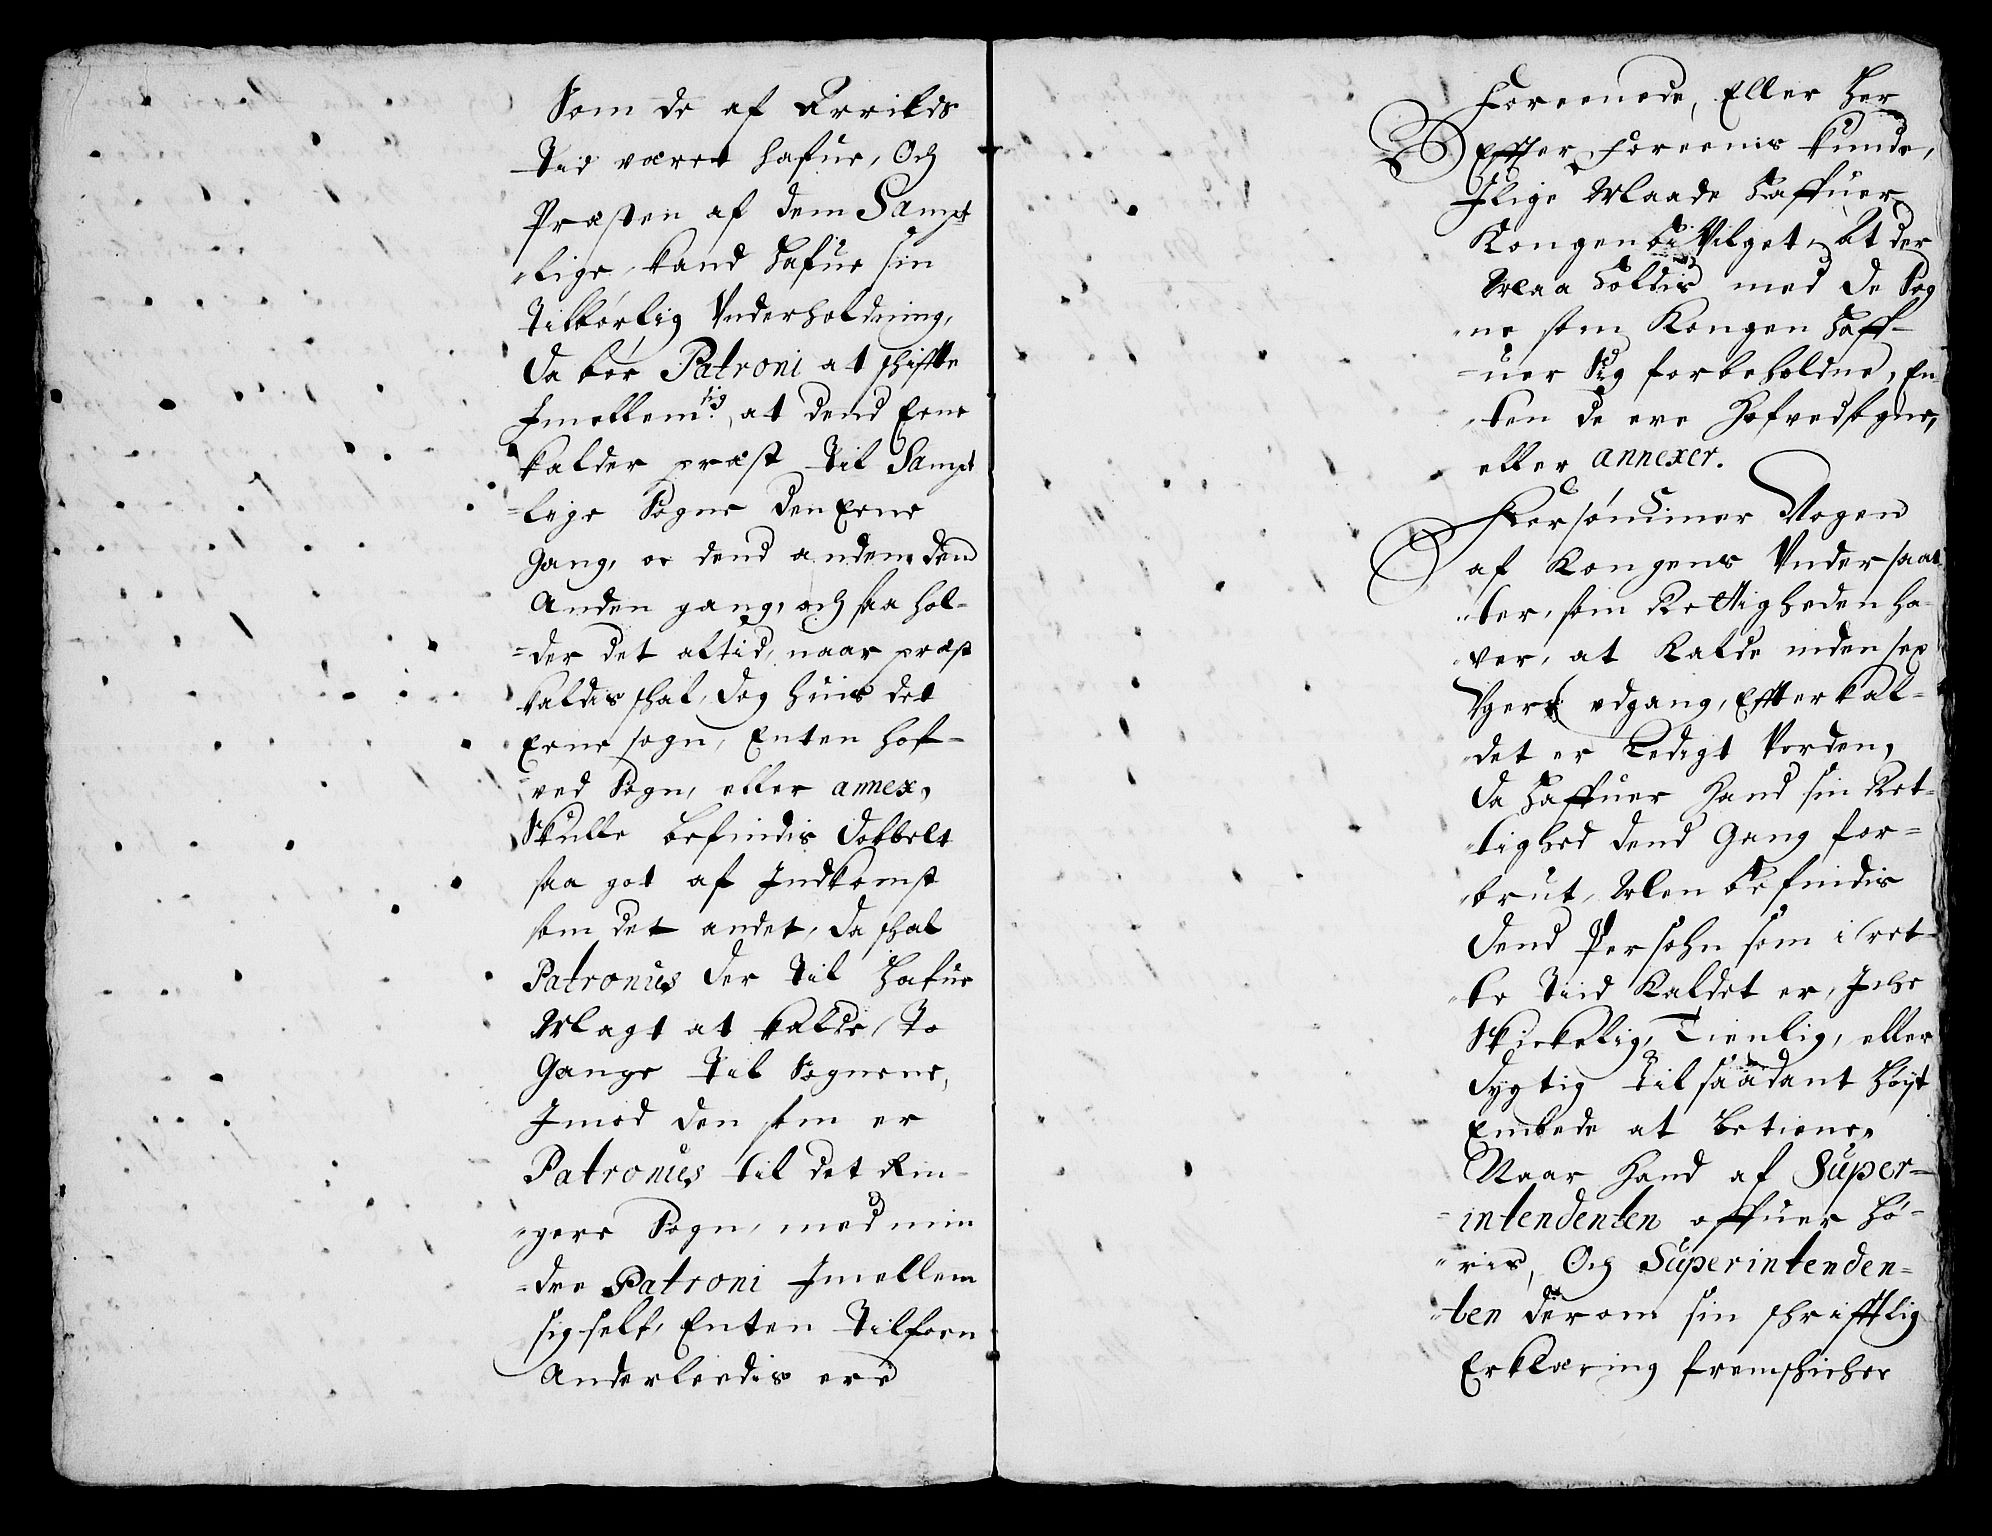 Som de af Arrilds
Tid været hafue, Och
Præsten af dem Sampt
"lige kand hafue sin
Tilbørlig Underholdning,
da bør Patroni at schiffte
Imellem sig, at dend Eene
kalder præst til Sampt
=lige Sogne den Eene
Gang, oc dend anden den
Anden gang, och saa hol=
=der det altid, naar præst
kaldis schal, dog huis det
Eene sogn, Enten Hof=
=ved Sogn, eller annex,
Skulle befindis dobbelt
saa got af Indkomst
som det andet, da schal
Patronus der til hafue
Magt at kalde To
Gange til Sognene,
Imod den som er
Patronus til det Rin=
"gere Sogn, med min
=dre Patroni Imellem
sig self, Enten Tilforn
Anderleedis ere
Foreenede, Eller her
Effter foreenis kunde,
Ilige Maade haffuer
Kongen bevilget, At der
Maa holdis med de Sog
"ne som Kongen haff=
=uer Sig forbeholdne, En=
"ten de ere Hofvedsogne,
eller annexer.
Forsømmer Nogen
af Kongens Undersaat
"ter, som Rettigheden ha=
"ver, at Kalde inden sex
Uger udgang, Effter kal=
"det er Ledigt vorden,
da haffuer hand sin Ret=
"tighed dend Gang for=
"brut, Men befindis
dend Persohn som i ret=
"te Tiid Kaldet er, Iche
Skickelig, Tienlig, eller
dygtig til saadant høyt
Embede at betiene,
Naar hand af Super=
=intendenten offuer hø=
"ris, Och Superintenden=
"ten derom sin schrifftlig
Erklæring fremschicher